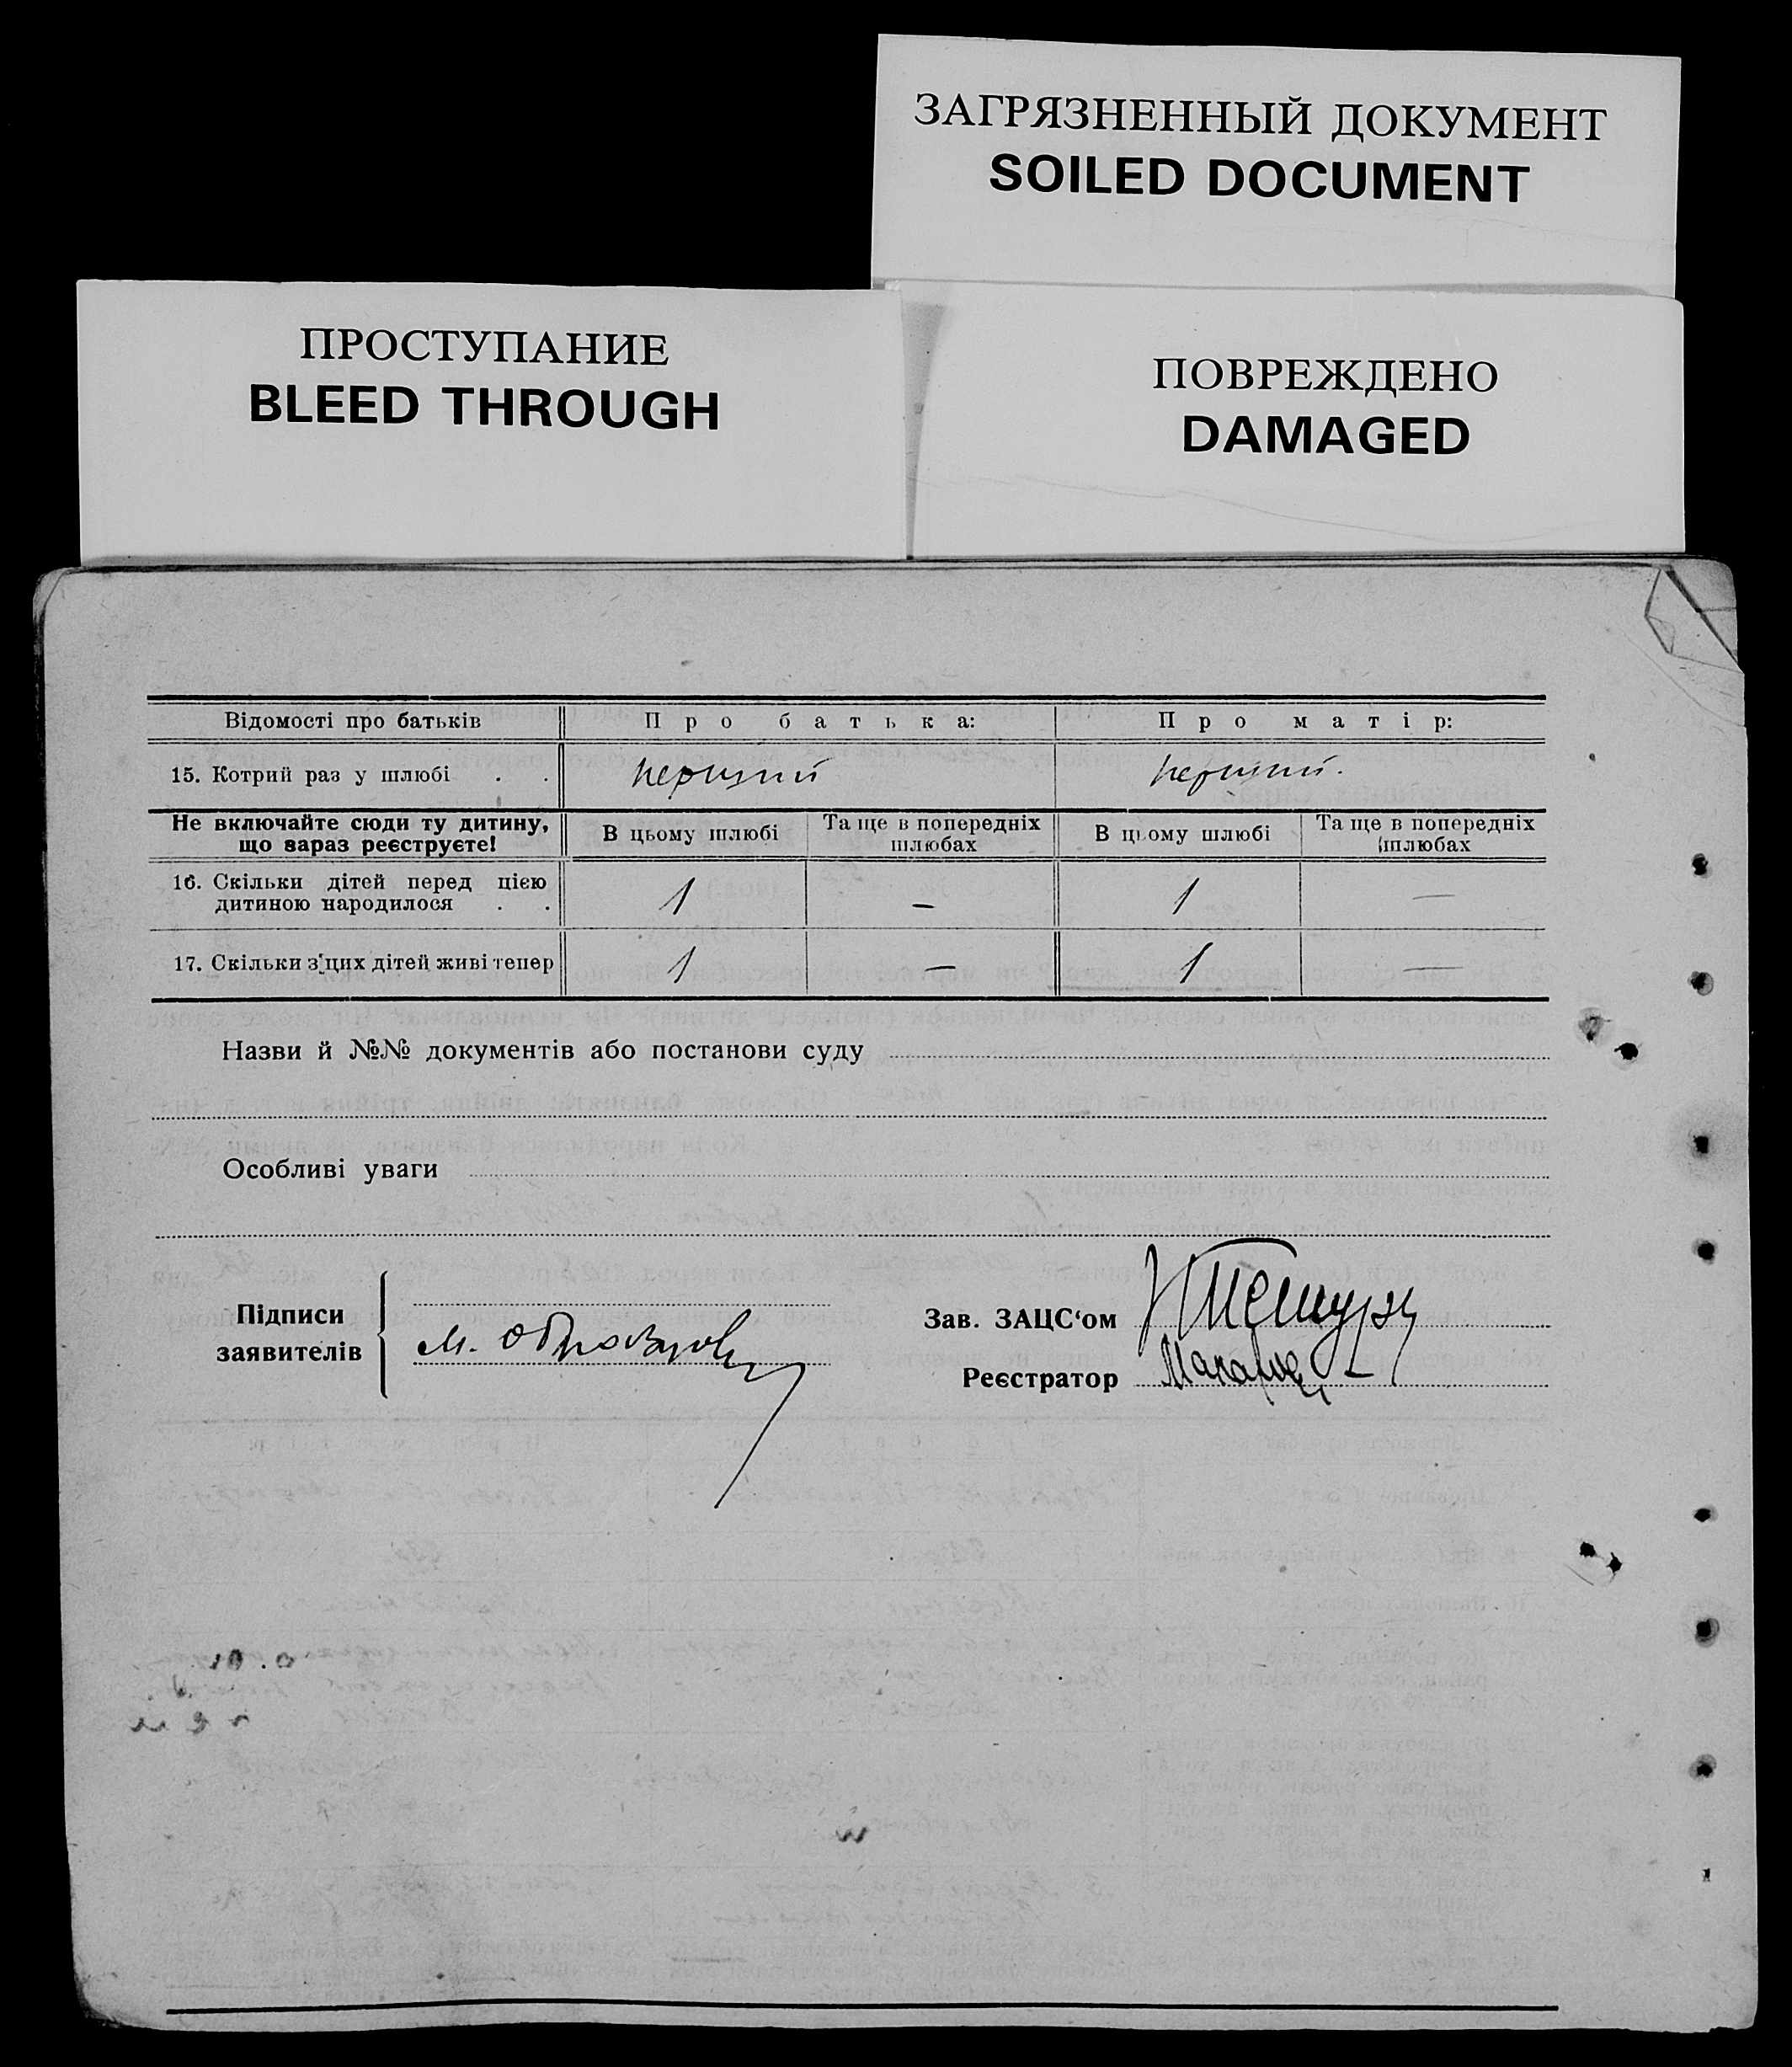 ЗАГРЯЗНЕННЫЙ ДОКУМЕНТ
SOILED DOCUMENT
ПРОСТУПАНИЕ
BLEED THROUGH
ПОВРЕЖДЕНО
DAMAGED
Відомості про батьків Про батька: Про матір:
15. Котрий раз у шлюбі . . перший перший.
Не включайте сюди ту дитину, що зараз реєструєте! В цьому шлюбі Та ще в попередніх шлюбах В цьому шлюбі Та ще в попередніх шлюбах
16. Скільки дітей перед цією
дитиною народилося . . 1 – 1 —
17. Скільки з'цих дітей живі тепер 1 — 1 —
Назви й №№ документів або постанови суду
Особливі уваги
Підписи
заявителів
М.
Зав. ЗАЦС'ом
Реєстратор